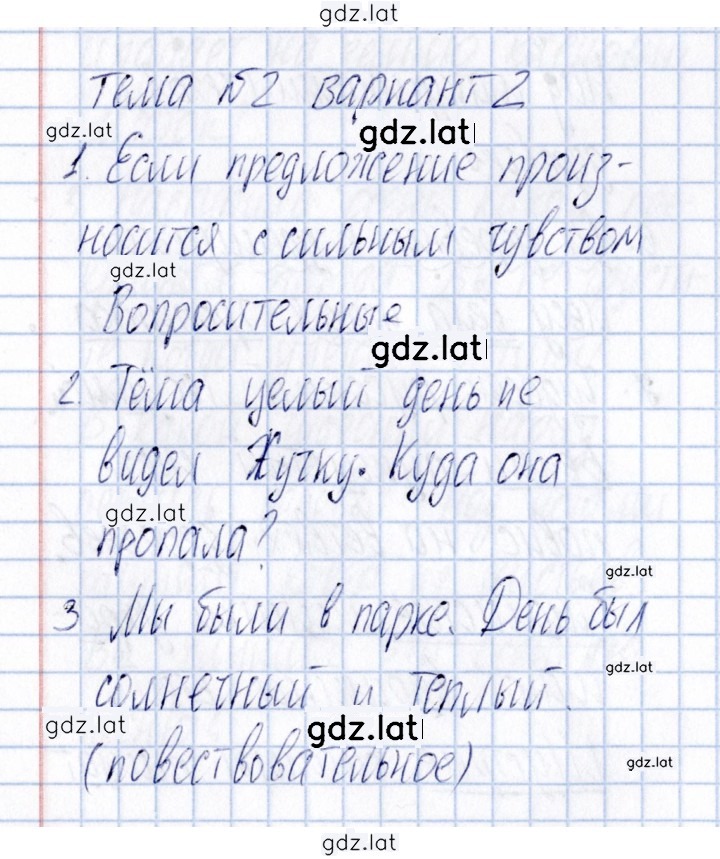 gdz.lat
Тема №2 вариант 2
gdz.lat
gdz.lat
1. Если предложение произ-
носится с сильным чувством
gdz.lat
Вопросительные
gdz.lat
2. Тёма целый день не
видел Жучку. Куда она
gdz.lat
пропала?
gdz.lat
3 Мы были в парке. День был
gdz.lat
солнечный и теплый.
gdz.lat
gdz.lat
(повествовательное)
gdz.lat
gdz.lat